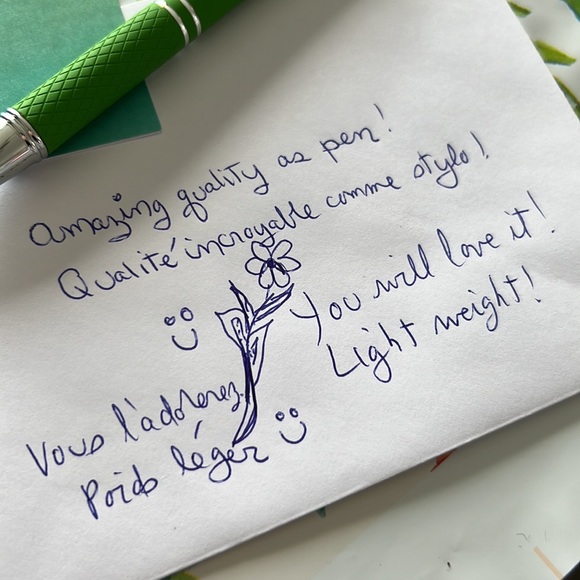 Amazing quality as pen!
Qualité incroyable comme stylo!
You will love it!
Light weight!
Vous l'adorerez
Poids léger